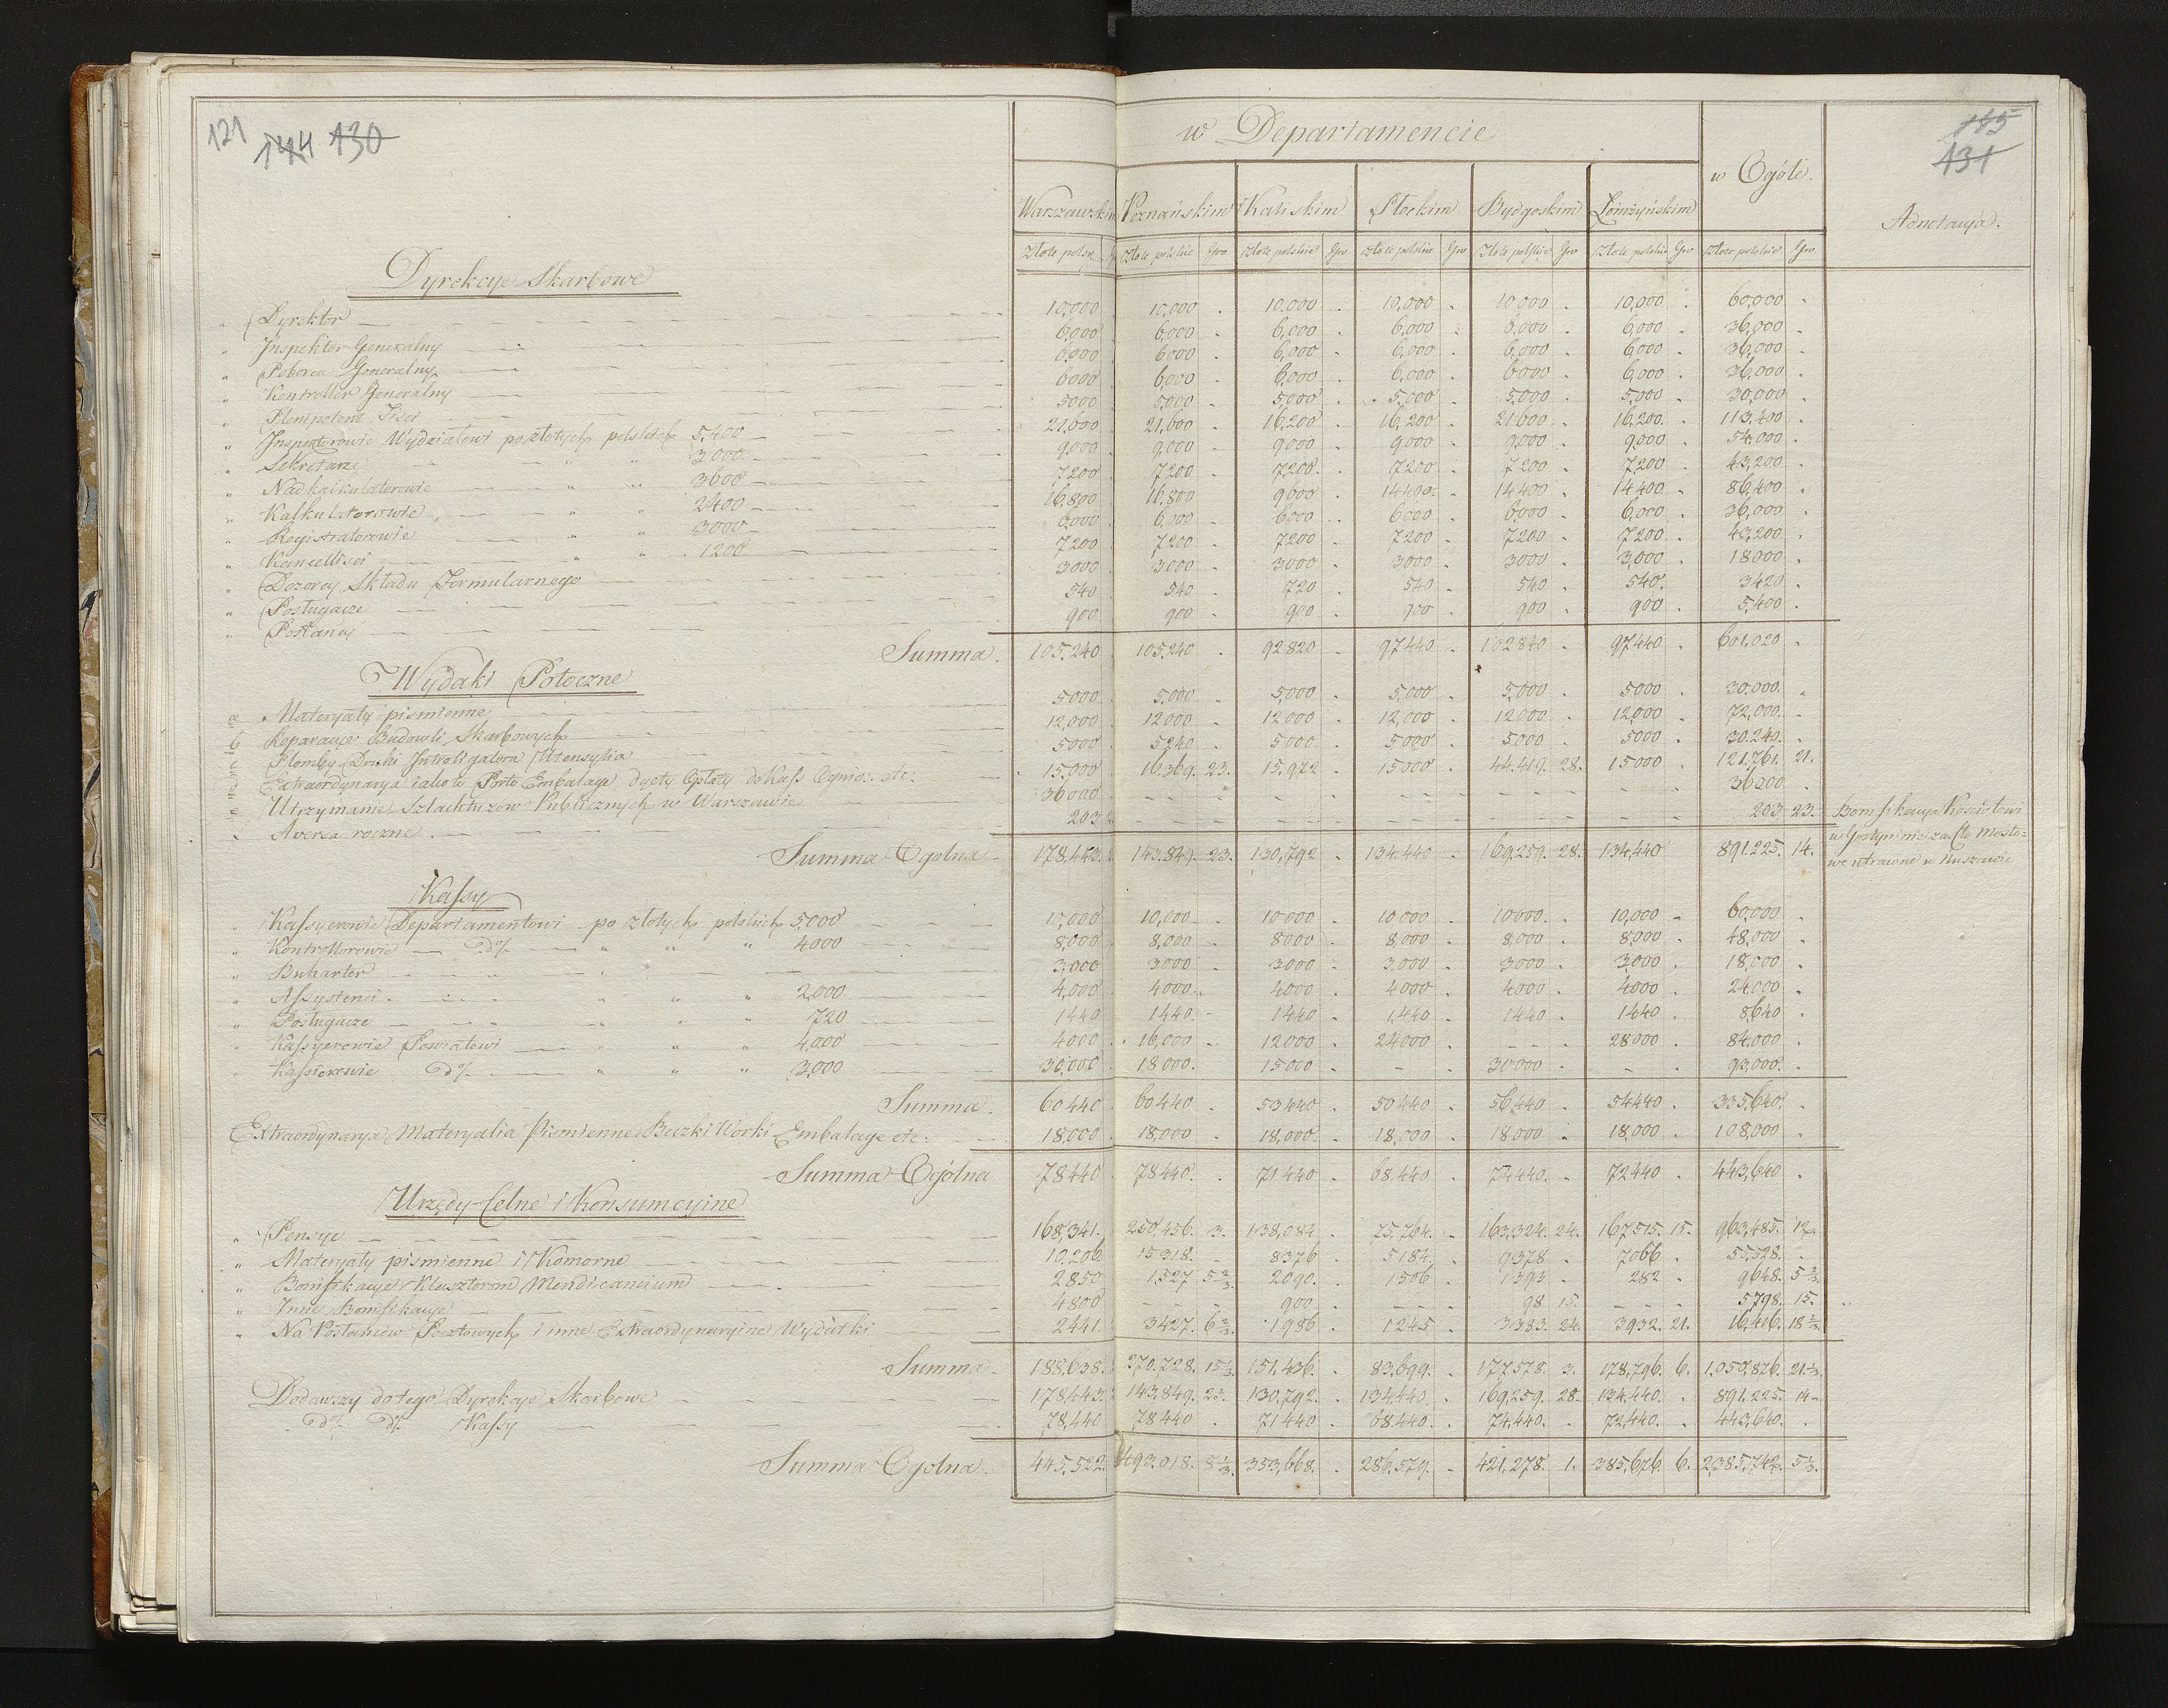 121 144 130
115
131
w Departamencie
w Ogóle.
Adnotacya.
Warszawskim Poznańskim Kaliskim Płockim Bydgoskim Łomżyńskim
Złote polskie Gro Złote polskie Gro Złote polskie Gro Złote polskie Gro Złote polskie Gro Złote polskie Gro
Dyrekcye Skarbowe
" Dyrektor 10,000 10,000 . 10.000 . 10,000 . 10.000 . 10,000 . 60,000 .
" Inspektor Generalny 6,000 6,000 . 6,000 . 6,000 . 6,000 . 6,000 . 36,000 .
" Poborca Generalny 6,000 6000 . 6,000 . 6,000 . 6,000 . 6000 . 36,000 .
" Kontroller Generalny 6000 6,000 . 6,000 . 6,000 . 6000 . 6,000 . 36,000 .
" Plenipotent Fisci 5000 5000 . 5,000 . 5,000 . 5,000 . 5,000 . 30,000 .
" Inspektorowie Wydziałowi po złotych polskich 5,400 21,600 21,600 . 16,200 . 16,200 . 21600 . 16,200 . 113,400 .
" Sekretarze " " 3000 9,000 9,000 . 9000 . 9000 . 9,000 . 9,000 . 54,000 .
" Nadkalkulatorowie " " 3600 7200 7200 . 7200 . 7200 . 7200 . 7,200 . 43,200 .
" Kalkulatorowie " " 2400 16,800 16,800 9600 . 14400 . 14400 . 14400 . 86,400 .
" Registratorowie " " 3000 6000 6,000 . 6000 . 6000 . 6000 . 6,000 . 36,000 .
" Kancellisci " " 1200 7200 7,200 . 7200 . 7200 . 7200 . 7200 . 43,200 .
" Dozorcy Składu Formularnego 3000 3000 . 3000 . 3000 . 3000 . 3,000 . 18000 .
" Posługacze 540 540 . 720 . 540 . 540 . 540 . 3420 .
" Posłańcy 900 900 . 900 . 900 . 900 . 900 . 5,400 .
Summa. 105,240 105,240 . 92820 . 97440 . 102840 . 97440 . 601,020 .
Wydaki Potoczne
Materyały pismienne 5000 5,000 . 5,000 . 5,000 . 5,000 . 5000 . 30.000. .
Reparacye Budowli Skarbowych 12,000 12000 . 12000 . 12,000 . 12000 . 12000 . 72,000. .
Plomby, Druki Introligatora Utensylia 5000 5240 . 5000 . 5000 . 5,000 . 5000 . 30.240. .
Extraordynarya iakoto Porto Embalage dyety Opłaty do Kass Ognio: etc: 15,000 16369. 23. 15,972 . 15000 . 44,419. 28. 15000 . 121,761. 21.
Utrzymanie Szlachtuzow Publicznych w Warszawie 36000 36000 .
Aversa roczne 203 203 23. Bonifikacya Kościołowi
w Gostyninie za Cło Mosto=
we utracone w Ruszowie
Summa Ogolna 178,443. 143.849. 23. 130,792 . 134.440 . 169,259. 28. 134,440 891.225. 14.
Kassy
" Kassyerowie Departamentowi po złotych polskich 5,000 10,000 10,000 . 10000 . 10000 . 10000 . 10,000 . 60,000 .
" Kontrollorowie do " " " 4000 8,000 8,000 . 8000 . 8,000 . 8,000 . 8,000 . 48,000 .
" Buhalter 3,000 3000 . 3000 . 3,000 . 3000 . 3,000 . 18,000 .
" Assystenci " " " 2,000 4,000 4000 . 4000 . 4000 . 4000 . 4000 . 24000 .
" Posługacze " " " 720 1440 1440 . 1440 . 1,440 . 1440 . 1440 . 8,640 .
" Kassyerowie Powiatowi " " " 4,000 4000 16,000 . 12000 . 24000 . - - - 28000 . 84,000 .
" Kassierowie do " " " 3,000 30,000 18000. 15000 . - . 30000 . - . 93,000. .
Summa. 60440 60440 . 53440 . 50440 . 56440 . 54440 . 335,640. .
Extraordynarya, Materyalia Pismienne Beczki Worki Embalage etc: 18,000 18,000 . 18,000. . 18,000 . 18000 . 18,000 . 108,000 .
Summa Ogólna 78440 78440. . 71440 . 68,440 . 74440. . 72440 . 443,640 .
Urzędy Celne i Konsumcyjne
" Pensye 168,341. 250,456. 3. 138,084 . 75,764. . 163,324. 24. 167,515. 15. 963,485. 12.
" Materyały pismienne i Komorne 10.206 15318. . 8376 . 5184. . 9378 . 7066 . 55,528. .
" Bonifikacye Klasztorom Mendicantium 2850 1,527 5 2/3. 2090. . 1506 . 1393 . 282 . 9648. 5 2/3.
" Inne Bonifikacye 4800 - - - 900 . - - - 98 15. - - - 5,798. 15.
" Na Posłańców Pocztowych i inne Extraordynaryine Wydatki 2441. 3427. 6 2/3. 1986 . 1245 . 3383. 24. 3932. 21. 16,416. 18 2/3.
Summa. 188,638. 270.728. 15 1/3. 151,436. . 83,699. . 177,578. 3. 178,796. 6. 1,050,876. 21 1/3.
Dodawszy do tego Dyrekcye Skarbowe 178,443. 143,849. 23. 130,792. . 134,440. . 169,259. 28. 134,440. . 891.225. 14
do do Kassy 78,440 78440 . 71440 . 68.440. . 74,440. . 72,440. . 443,640. .
Summa Ogolna. 445,522. 493.018. 8 1/3. 353,668. . 286,579. . 421,278. 1. 385,676. 6. 2,385,742. 5 1/3.